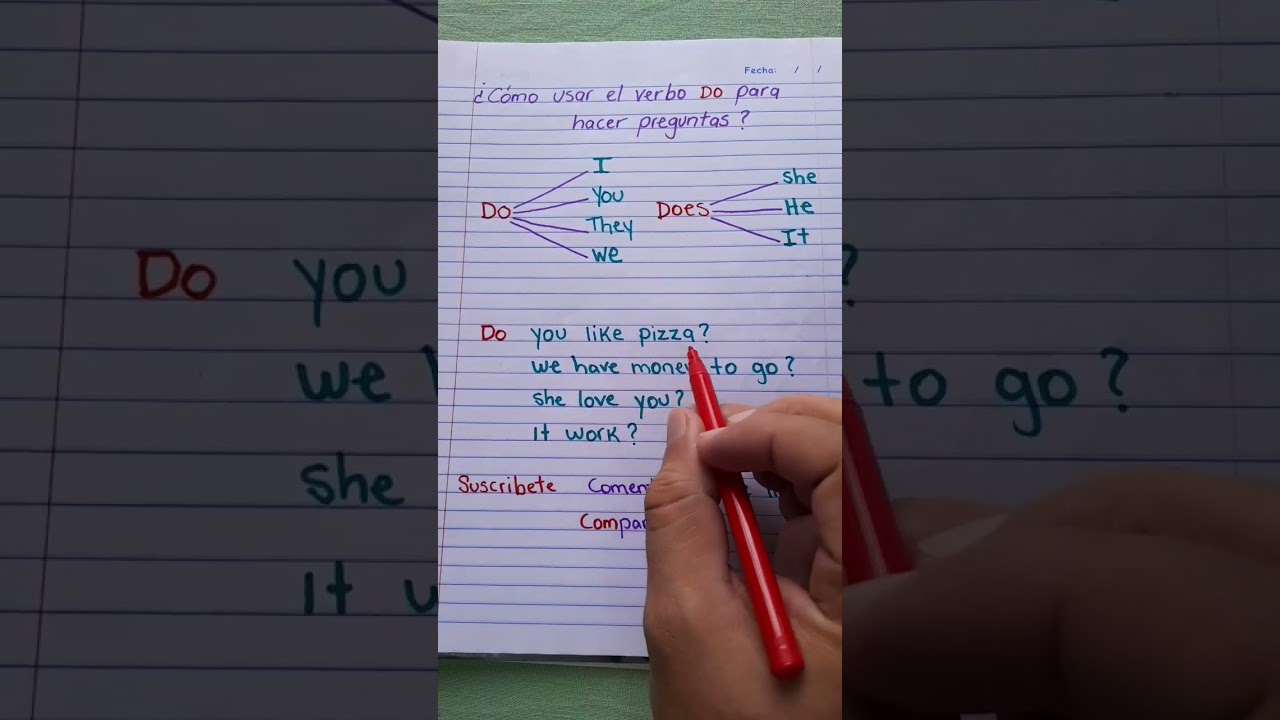 Fecha: / /
¿Cómo usar el verbo Do para
hacer preguntas?
I
You
Do
They
we
she
Does
He
It
Do you like pizza?
we have money to go?
she love you?
It work?
Suscribete